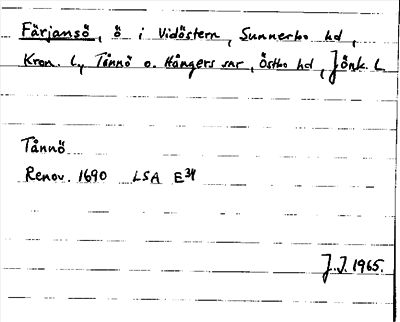 Färjansö, ö i Vidöstern, Sunnerbo hd,
Kron. l., Tånnö o. Hångers snr, Östbo hd, Jönk. l.
Tånnö
Renov. 1690 LSA E34
J.J. 1965.